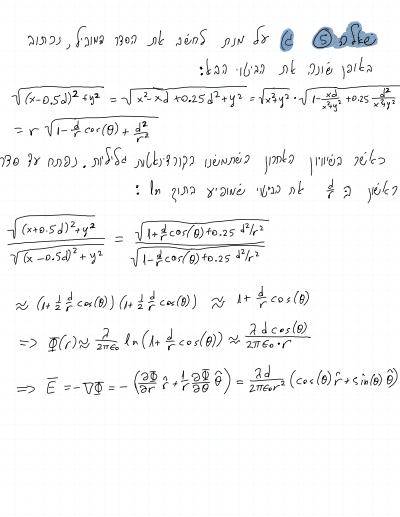 שאלה 5 ג) על מנת לחשב את הסדר המוביל, נכתוב
באופן שונה את הביטוי הבא:
√((x-0.5d)²+y²) = √(x²-xd+0.25d²+y²) = √(x²+y²) · √(1-xd/(x²+y²)+0.25 d²/(x²+y²))
= r √(1-d/r cos(θ)+d²/r²)
כאשר בשיוויון האחרון השתמשנו בקורדינאטות גליליות. נפתח עד סדר
ראשון ב d/r את הביטוי שמופיע בתוך ln :
√((x+0.5d)²+y²)/√((x-0.5d)²+y²) = √(1+d/r cos(θ)+0.25 d²/r²)/√(1-d/r cos(θ)+0.25 d²/r²)
≈ (1+½ d/r cos(θ))(1+½ d/r cos(θ)) ≈ 1+d/r cos(θ)
=> Φ(r) ≈ λ/2πε₀ ln(1+d/r cos(θ)) ≈ λdcos(θ)/2πε₀·r
=> E̅ = -∇Φ = -(∂Φ/∂r r̂+1/r ∂Φ/∂θ θ̂) = λd/2πε₀r² (cos(θ)r̂+sin(θ)θ̂)